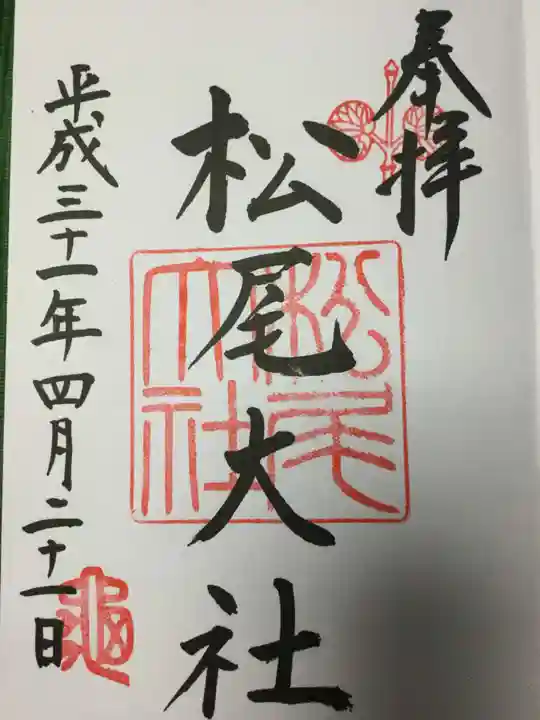 奉拝
松尾大社
松尾大社
平成三十一年四月二十一日
亀